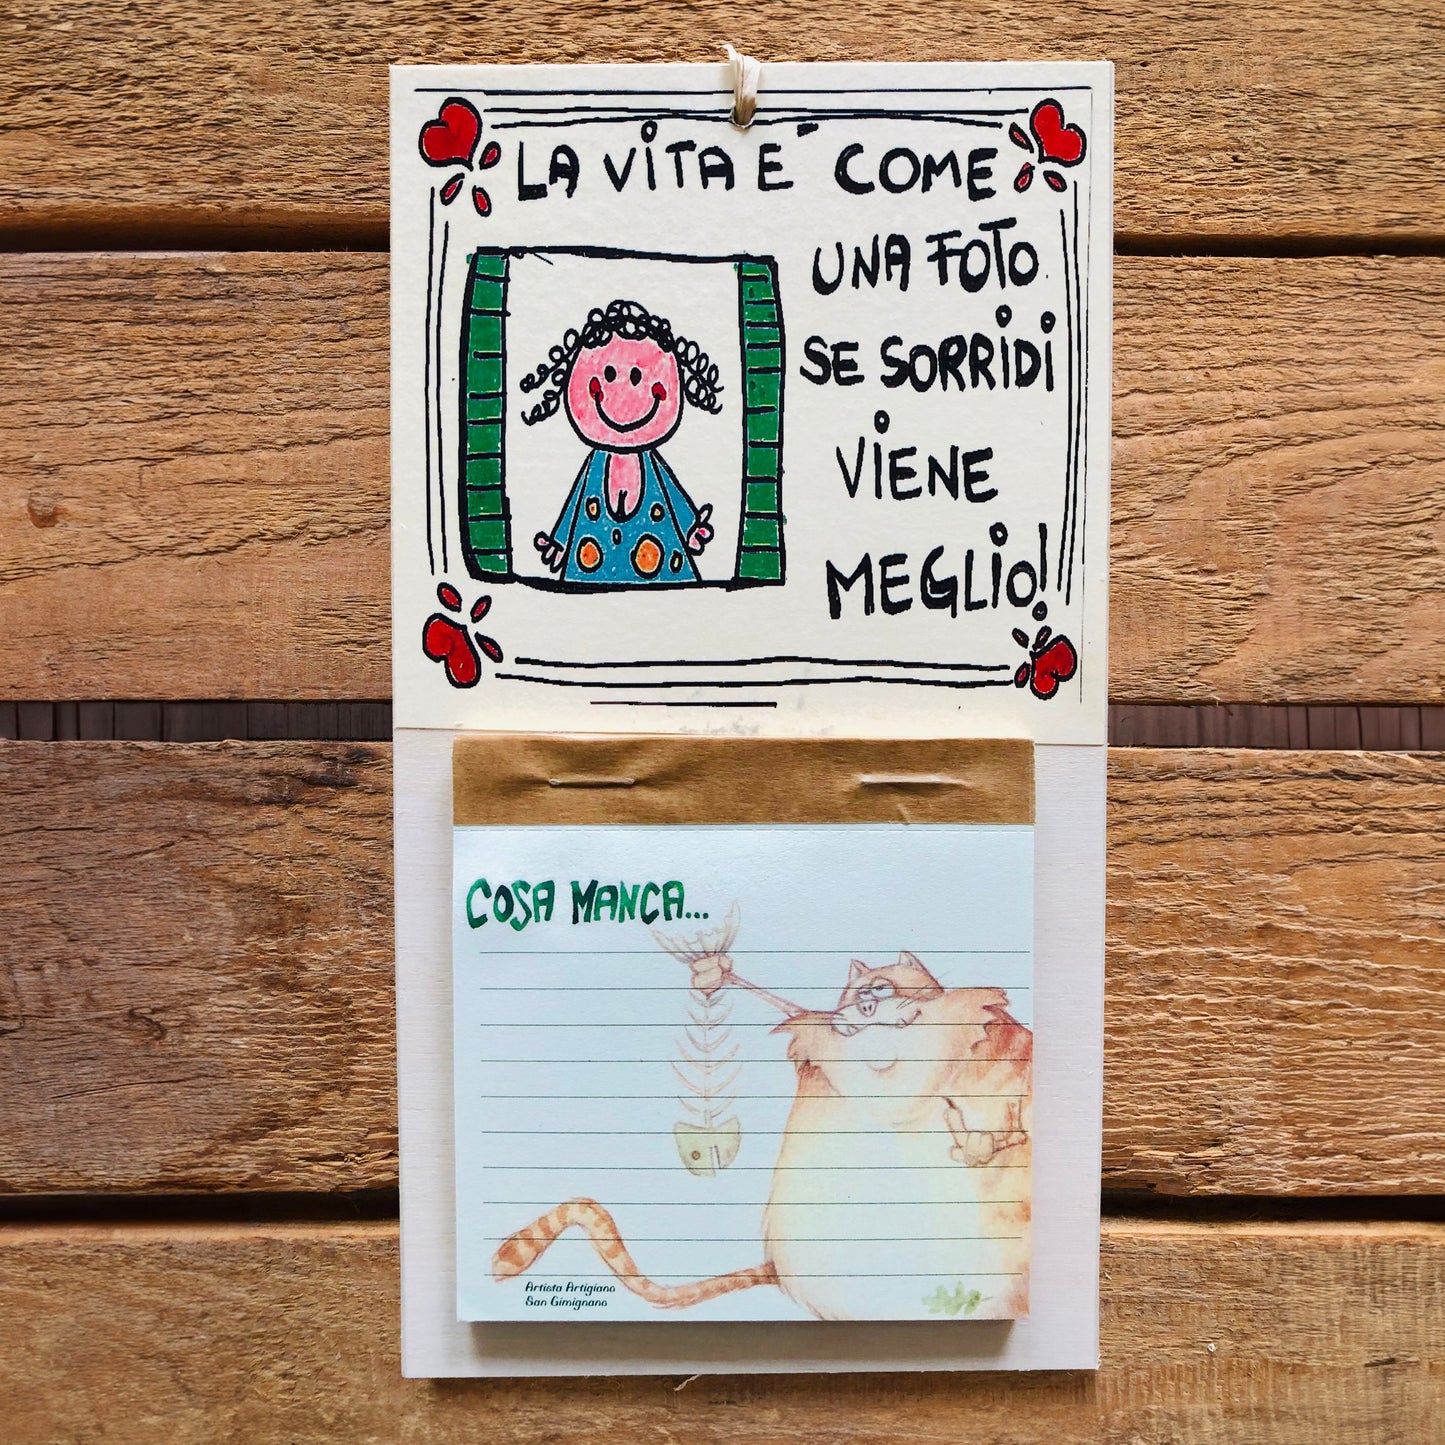 LA VITA E' COME
UNA FOTO
SE SORRIDI
VIENE
MEGLIO!
COSA MANCA...
Artista Artigiano
San Gimignano